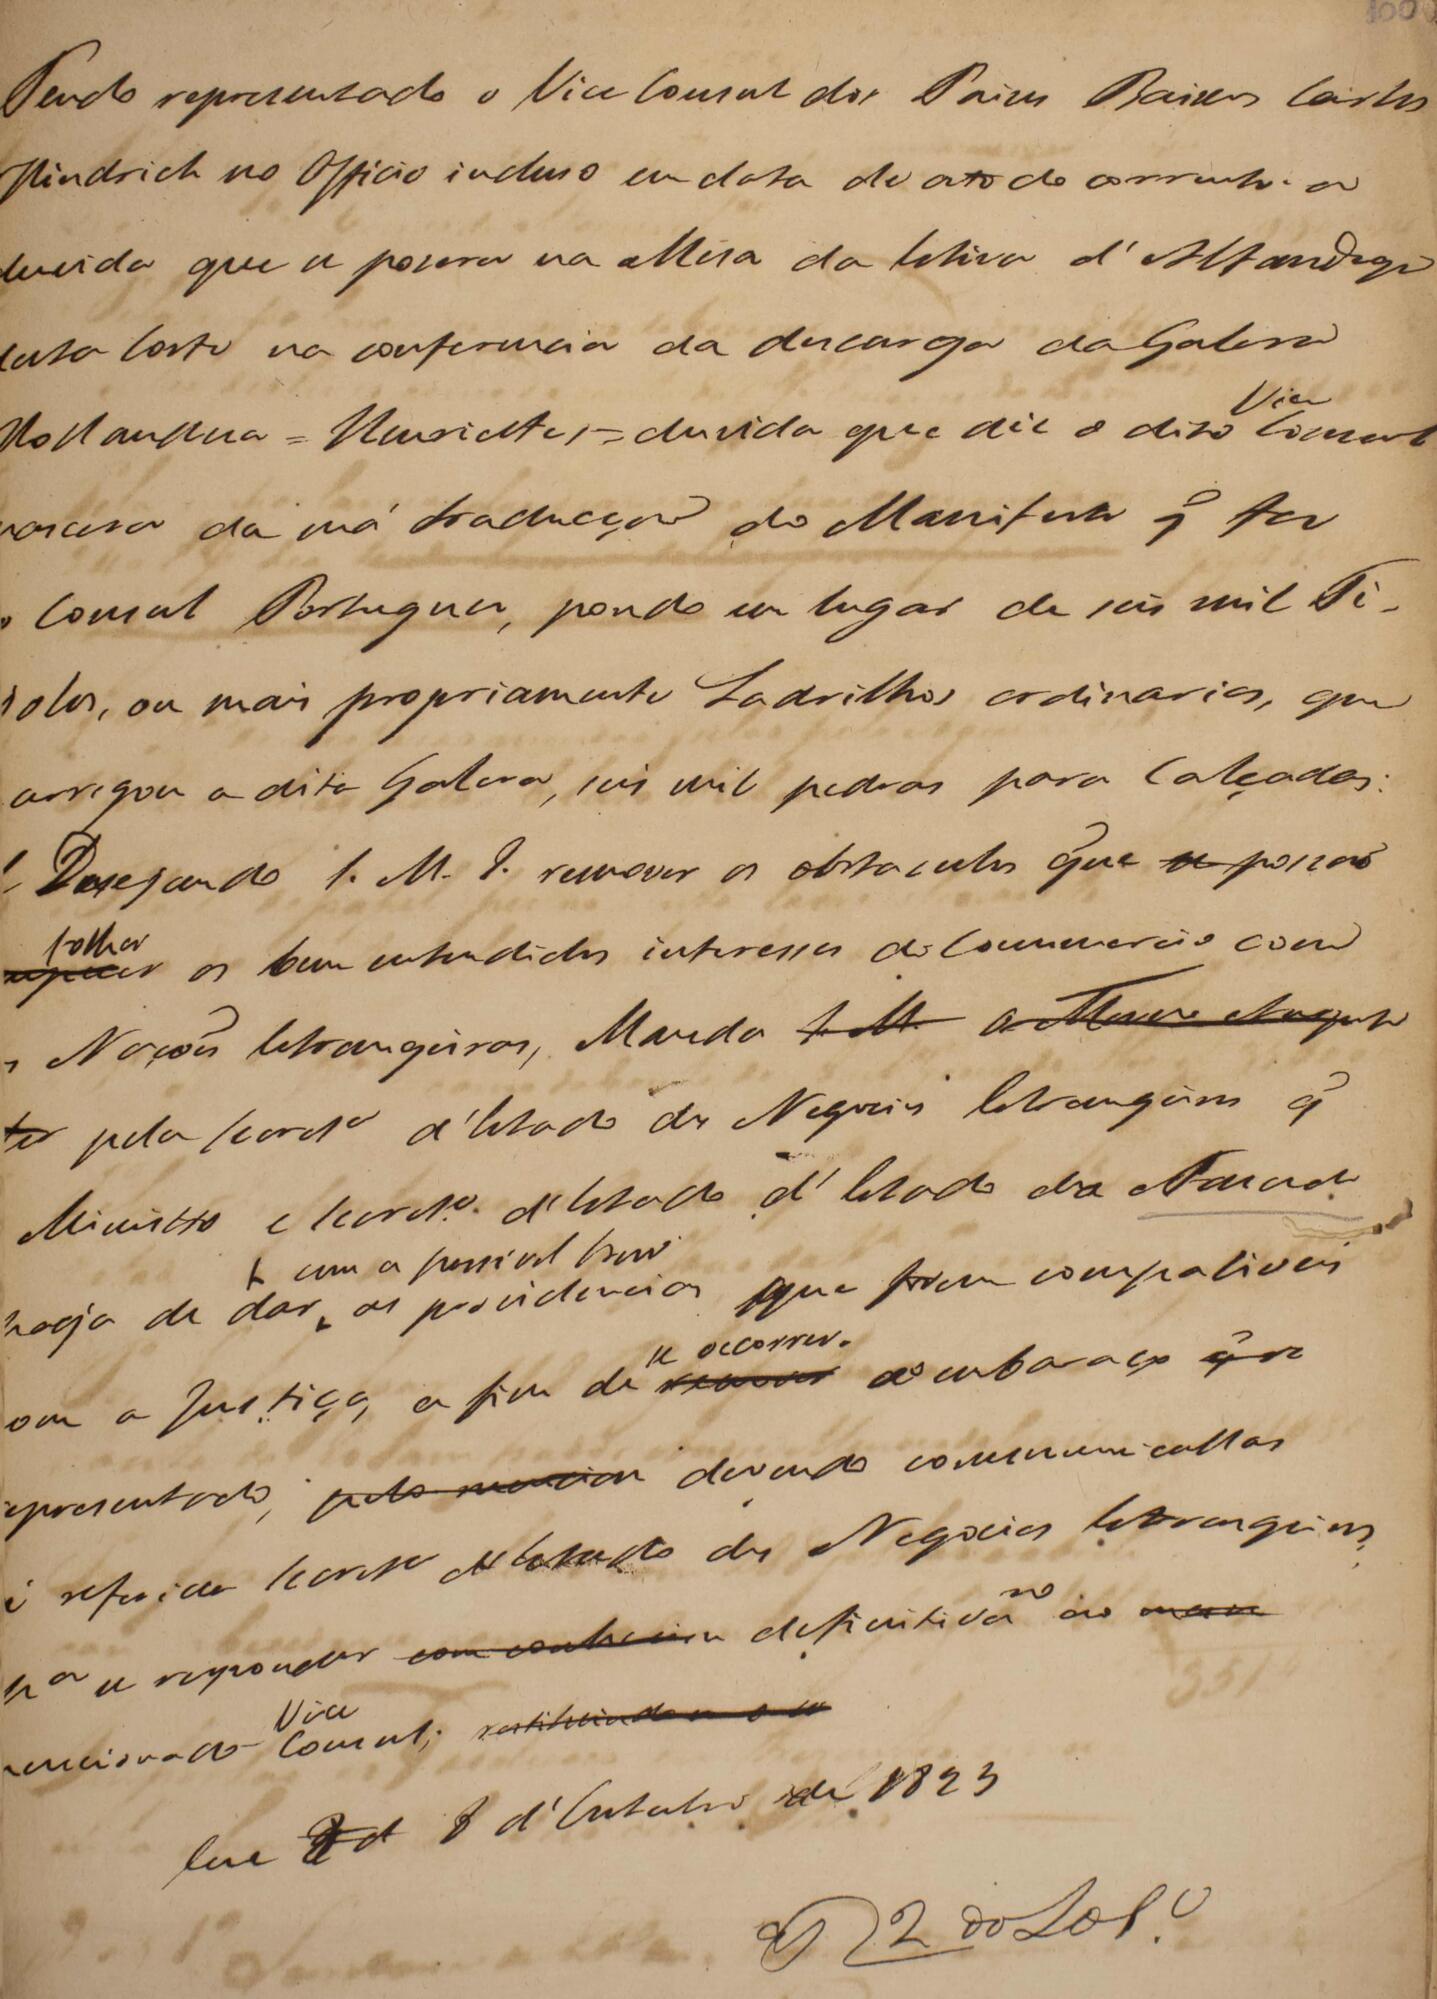 100
Tendo representado o Vice Consul dos Paises Baixos Carlos
Hindrich no Officio incluso em data de oito do corrente a
duvida que se pozera na Mesa da Estiva d'Alfandega
desta Corte na conferencia da descarga da Galera
Hollandeza = Henriette, = duvida que diz o dito Vice Consul
nascera da má traducção do Manifesto q̃ fez
o Consul Portuguez, pondo em lugar de seis mil Ti-
jolos, ou mais propriamente Ladrilhos ordinarios, que
carregou a dita Galera, seis mil pedras para Calçadas:
E Desejando S. M. I. remover os obstaculos que se possão
tolher os bem entendidos interesses do Commercio com
as Nações Estrangeiras, Manda S. M. o Mesmo Augusto
pela Secretª d'Estado dos Negocios Estrangeiros q̃
Ministro e Secretº d'Estado d'Estado da Fazenda
haja de dar, com a possivel brev as providencias que forem compativeis
com a Justiça, a fim de remover se occorrer ao embaraço que
representado, pelo mencion devendo communicallas
á referida Secretª d'Estado dos Negocios Estrangeiros,
pª se responder com conhecim definitivamº ao men
mencionado Vice Consul; restituindo
em 8 d'Outubro de 1823